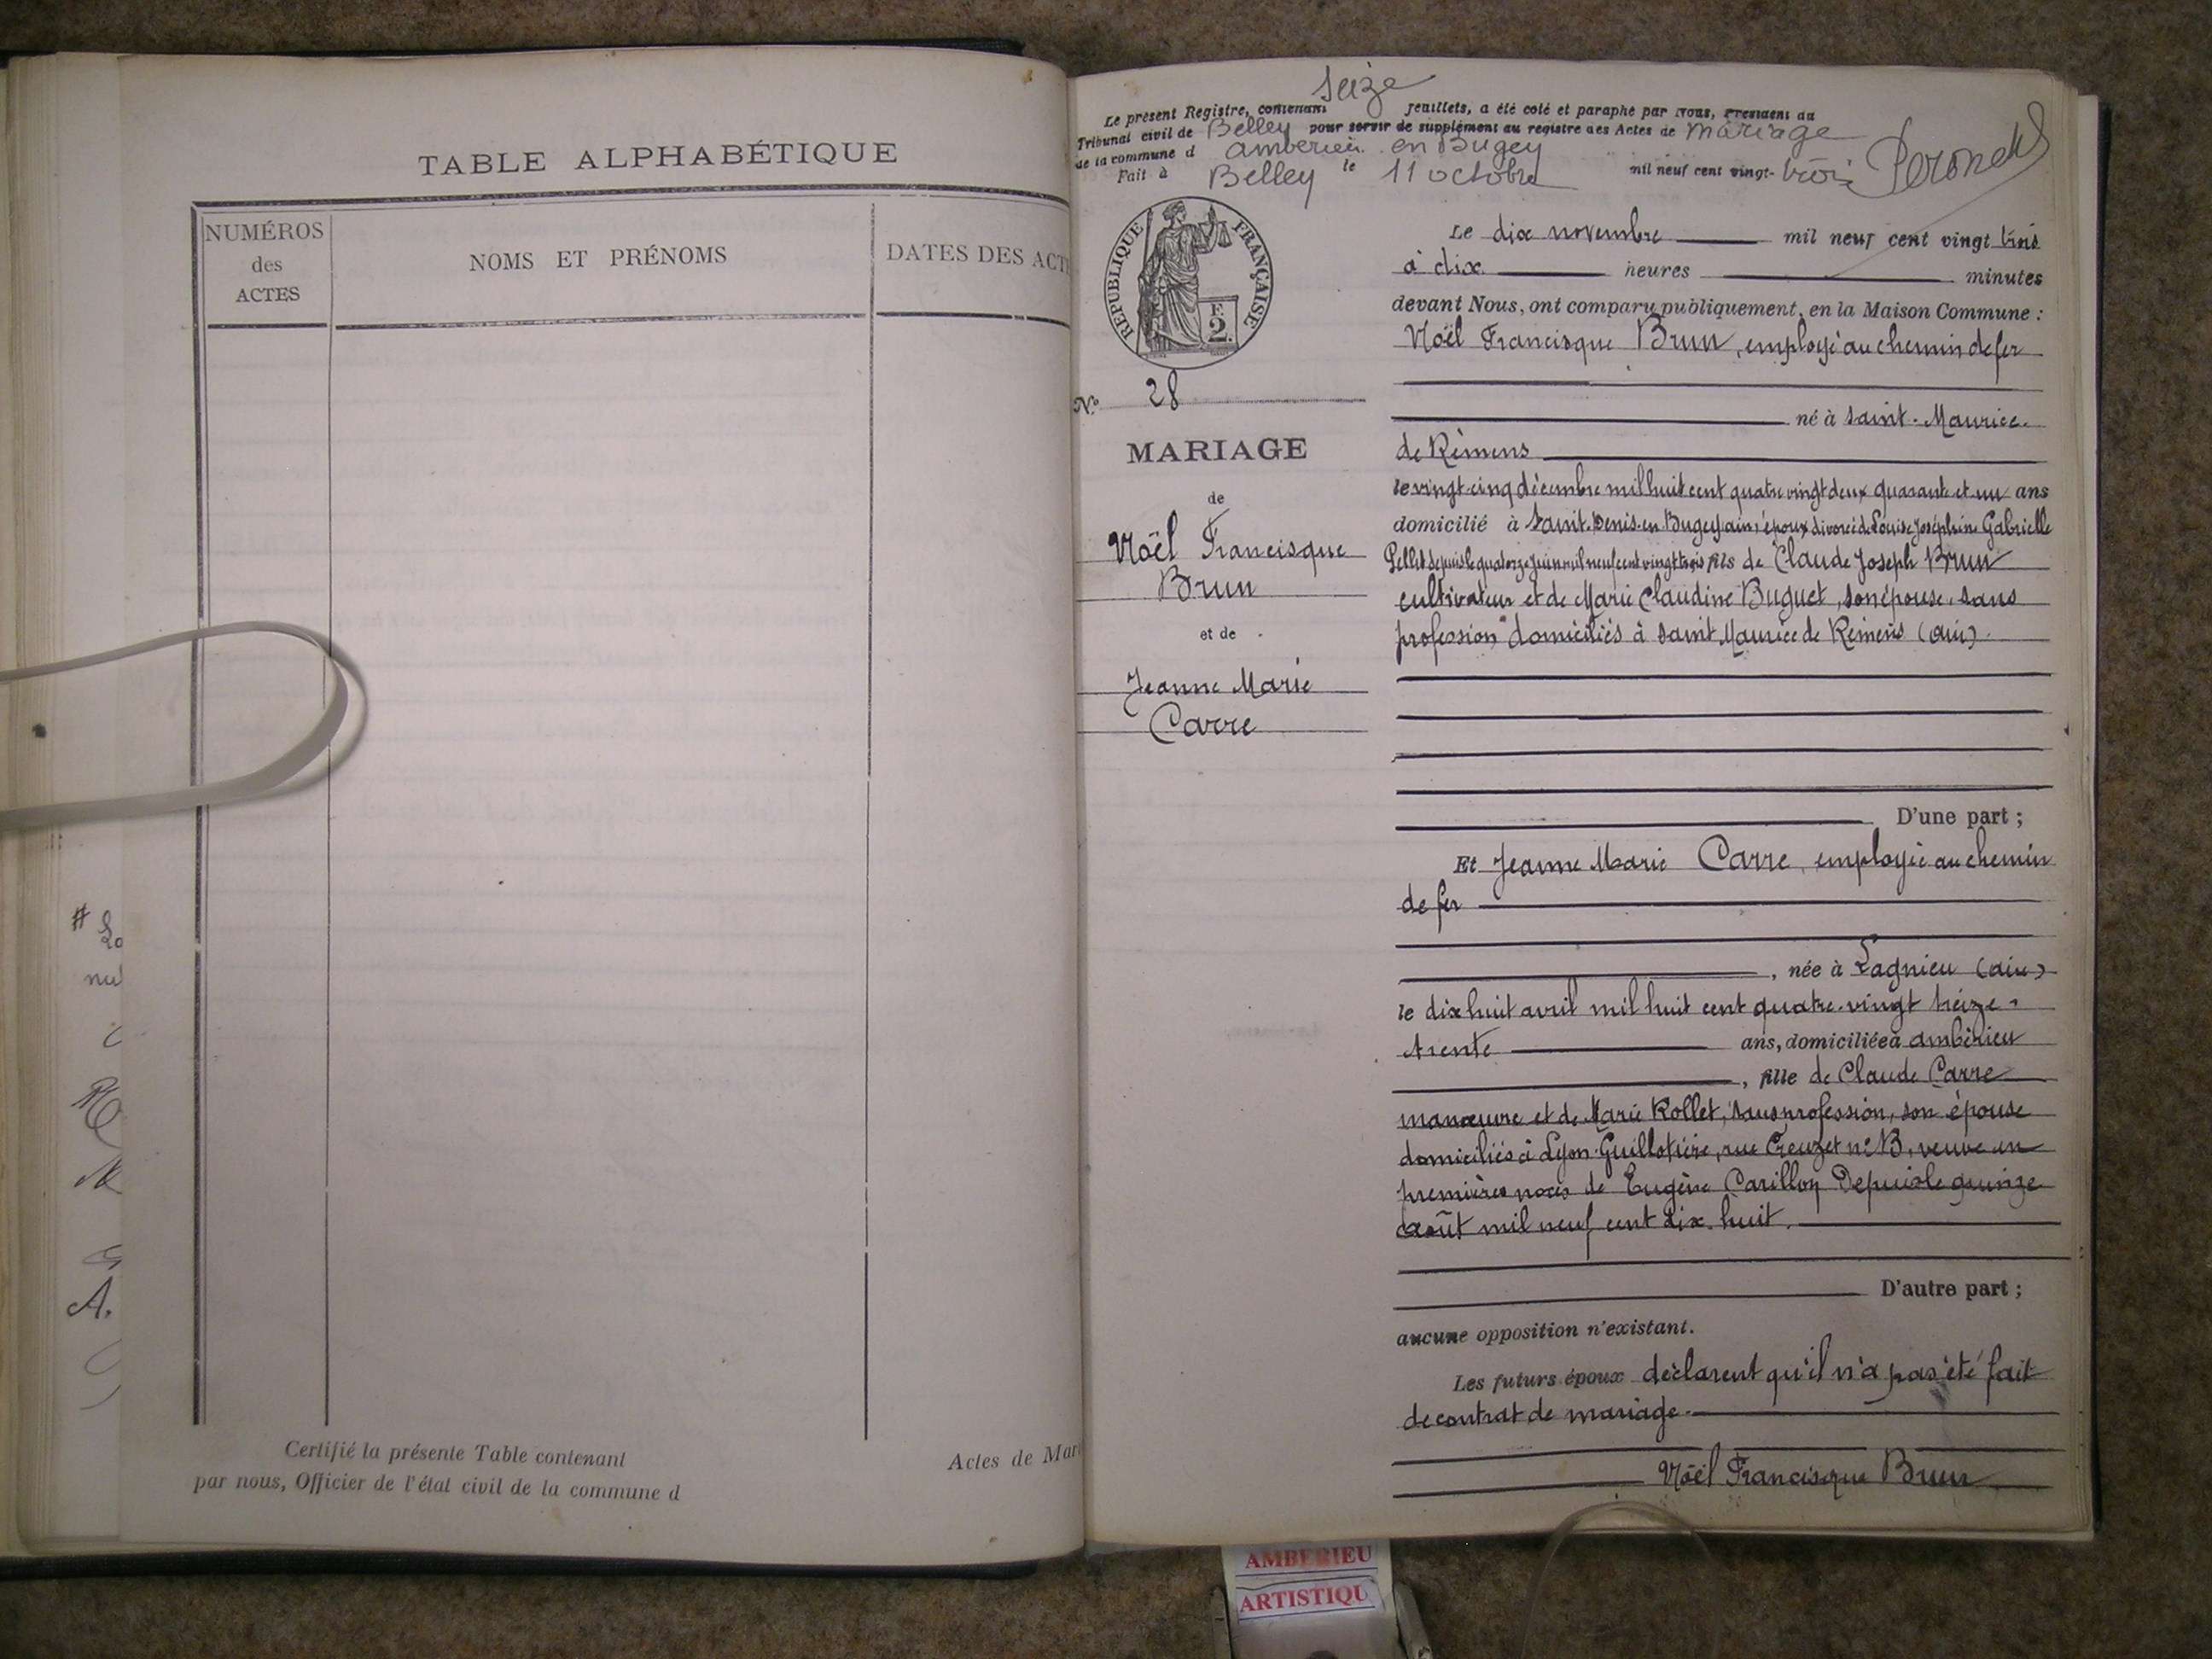 TABLE ALPHABÉTIQUE
NUMÉROS
des
ACTES
NOMS ET PRÉNOMS
DATES DES ACT
# 
nul
A.
Certifié la présente Table contenant
par nous, Officier de l'état civil de la commune d
Actes de Mar
seize
Le présent Registre, contenant feuillets, a été coté et paraphé par Nous, Président du
Tribunal civil de Belley pour servir de supplément au registre des Actes de mariage
de la commune d ambérieu en Bugey
Fait à Belley le 11 octobre mil neuf cent vingt-trois
RÉPUBLIQUE FRANÇAISE
F.
2.
N° 28
MARIAGE
de
Noël Francisque
Brun
et de
Jeanne Marie
Carre
Le dix novembre mil neuf cent vingt trois
à dix heures minutes
devant Nous, ont comparu publiquement, en la Maison Commune :
Noël Francisque Brun, employé au chemin de fer
né à Saint-Maurice
de Rémens
le vingt-cinq décembre mil huit cent quatre vingt deux quarante et un ans
domicilié à Saint-Denis-en-Bugey (ain) époux divorcé de Louise Joséphine Gabrielle
Pellet depuis le quatorze juin mil neuf cent vingt trois fils de Claude Joseph Brun
cultivateur et de Marie Claudine Buguet, son épouse, sans
profession domiciliés à Saint Maurice de Rémens (ain).
D'une part ;
Et Jeanne Marie Carre, employée au chemin
de fer
, née à Lagnieu (ain)
le dix huit avril mil huit cent quatre-vingt treize,
trente ans, domiciliée à ambérieu
, fille de Claude Carre
manœuvre et de Marie Rollet, sans profession, son épouse
domiciliés à Lyon-Guillotière, rue Creuzet n° 13, veuve en
premières noces de Eugène Carillon Depuis le quinze
août mil neuf cent dix-huit.
D'autre part ;
aucune opposition n'existant.
Les futurs époux déclarent qu'il n'a pas été fait
de contrat de mariage.
Noël Francisque Brun
AMBERIEU
ARTISTIQU